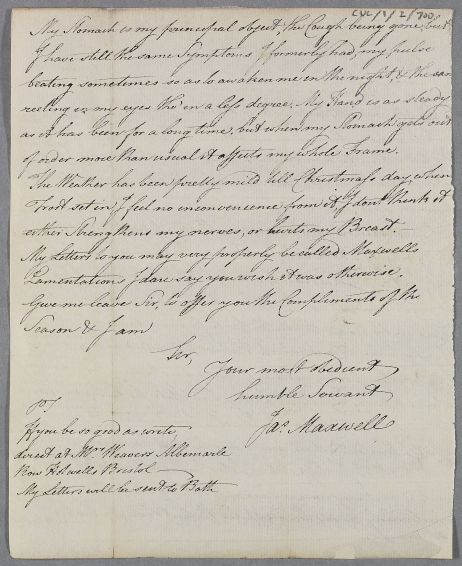 CUL/1/2/700
My Stomach is my principal object; the Cough being gone, but
I have still the same Symptoms I formerly had, my pulse
beating sometimes so as to awaken me in the night, & the same
reeling in my eyes tho' in a less degree. My Hand is as steady
as it has been for a long time, but when my Stomach gets out
of order more than usual it affects my whole Frame.
The Weather has been pretty mild till Christmass day, when
Frost set in. I feel no inconvenience from it. I don't think it
either Strengthens my nerves, or hurts my Breast. –
My Letters to you may very properly be called Maxwells
Lamentations I dare say you wish it was otherwise.
Give me leave Sir, to offer you the Compliments of the
Season & I am
Sir,
Your most obedient
humble Servant
Jas. Maxwell
If you be so good as write,
direct at Mrs. Weavers Albemarle
Row Hotwells Bristol
My Letters will be sent to Bath